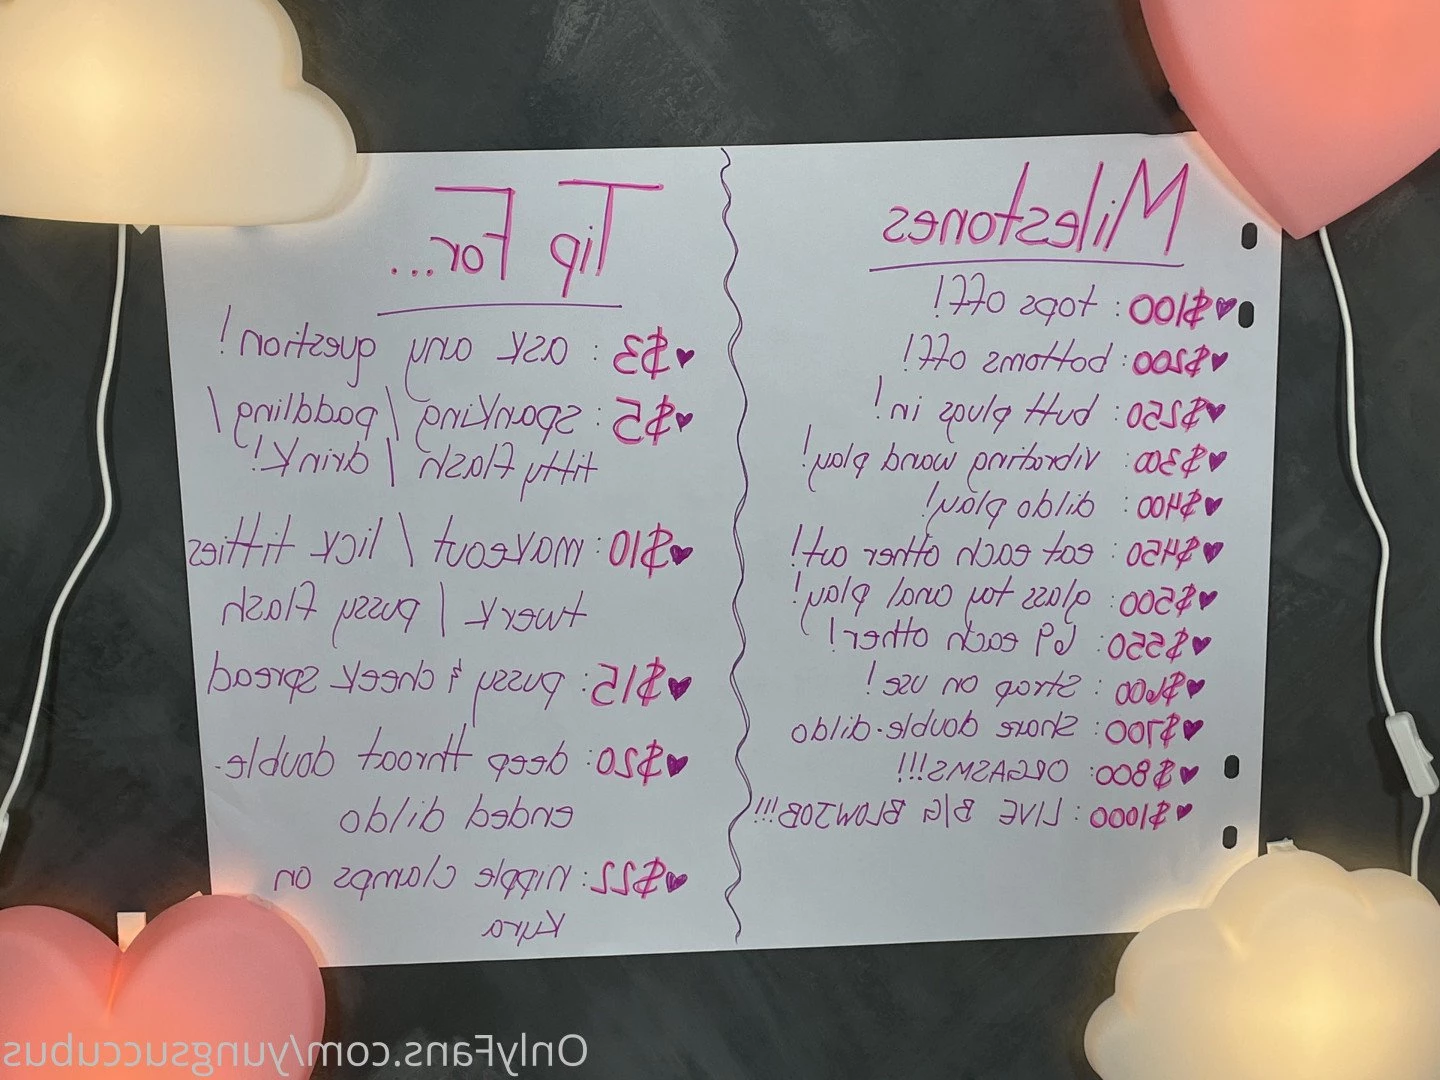 Milestones
♥$100: tops off!
♥$200: bottoms off!
♥$250: butt plugs in!
♥$300: vibrating wand play!
♥$400: dildo play!
♥$450: eat each other out!
♥$500: glass toy anal play!
♥$550: 69 each other!
♥$600: Strap on use!
♥$700: share double-dildo
♥$800: ORGASMS!!!
♥$1000: LIVE B/G BLOWJOB!!!
Tip For...
♥$3: ask any question!
♥$5: spanking / paddling /
titty flash / drink!
♥$10: makeout / lick titties
twerk / pussy flash
♥$15: pussy & cheek spread
♥$20: deep throat double-
ended dildo
♥$22: nipple clamps on
Kyra
OnlyFans.com/yungsuccubus